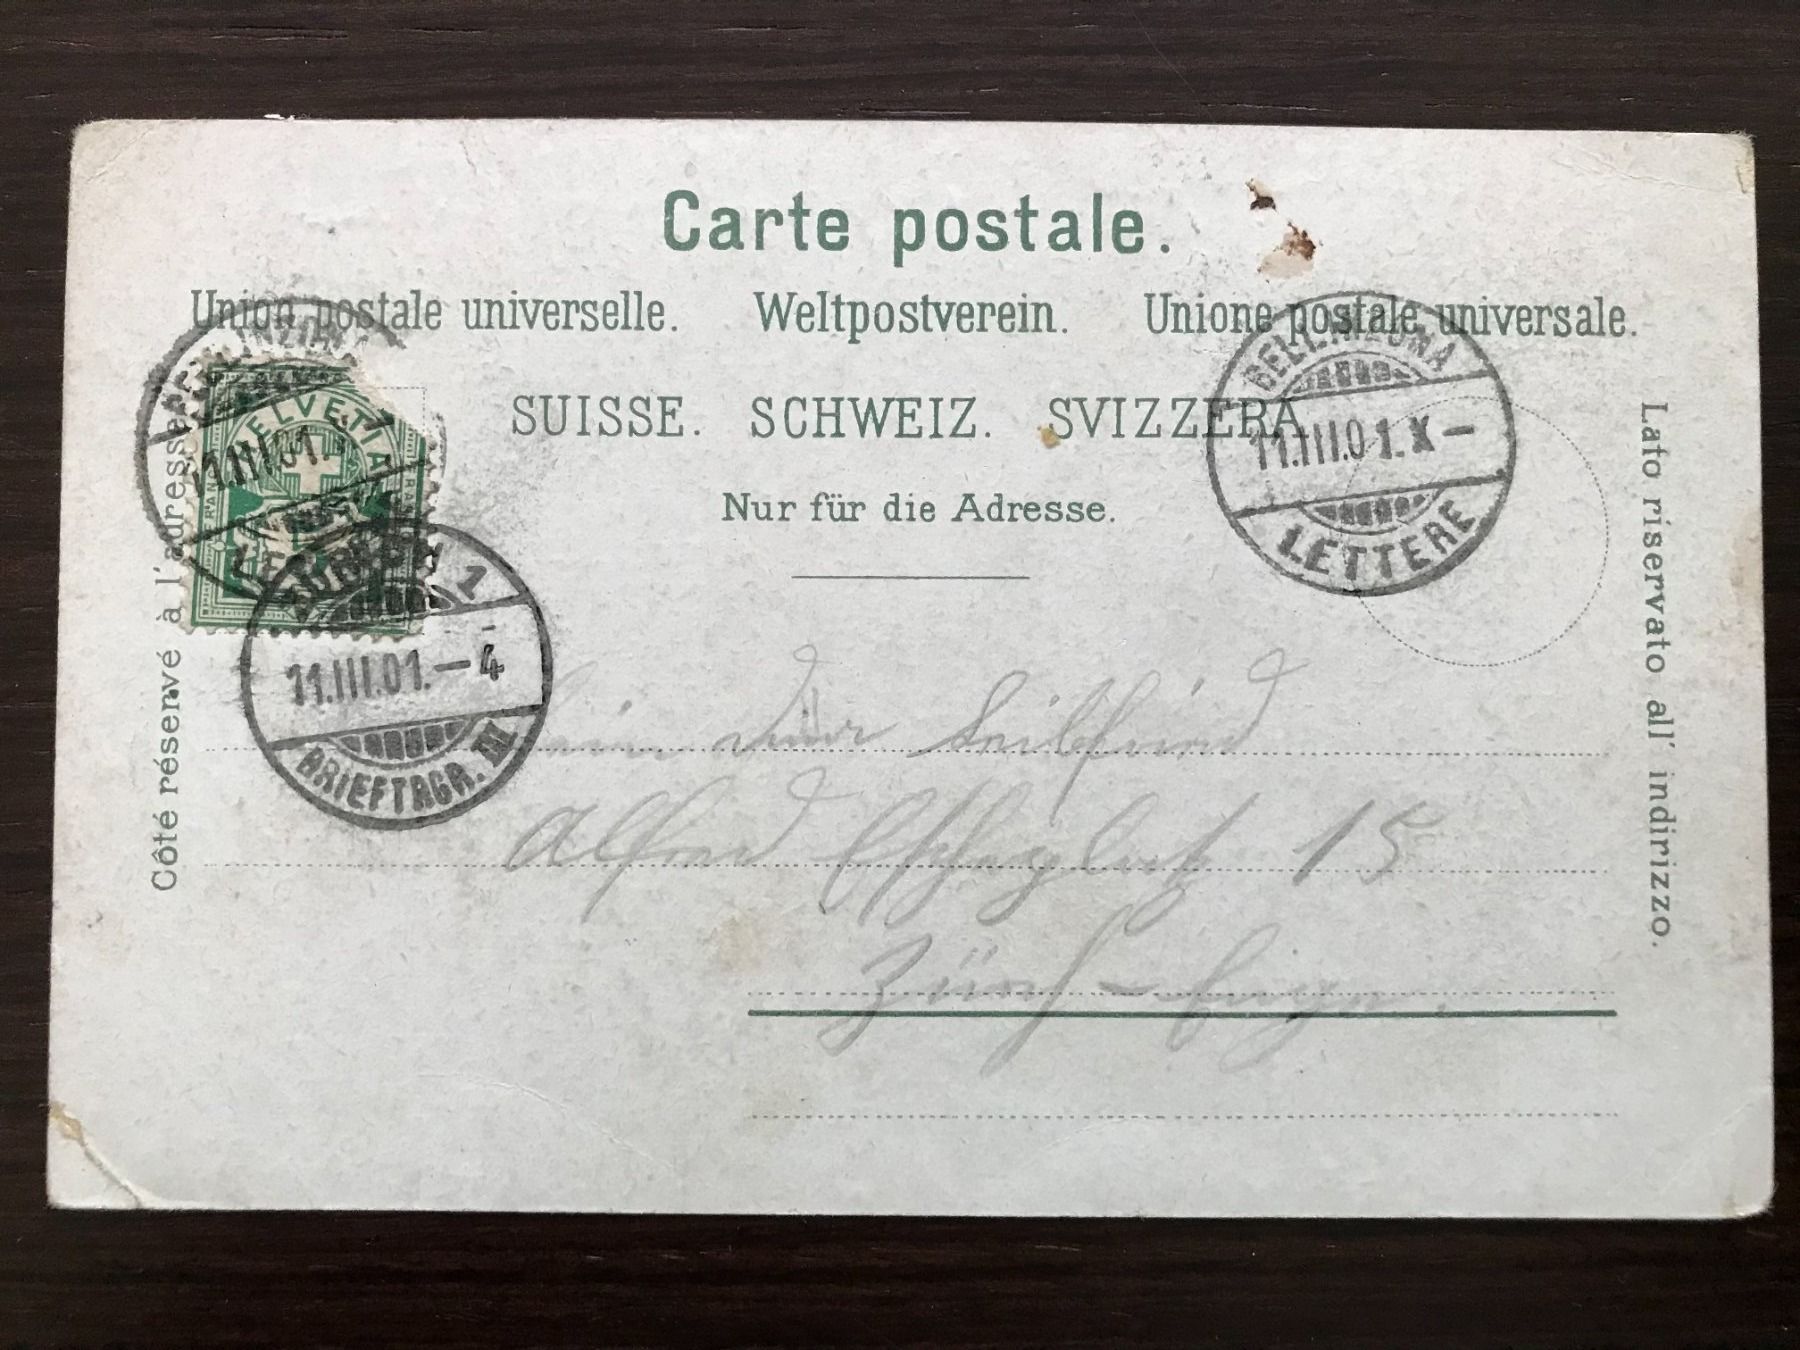 Carte postale.
Union postale universelle. Weltpostverein. Unione postale universale.
SUISSE. SCHWEIZ. SVIZZERA
Nur für die Adresse.
Côté réservé à l'adresse
Lato riservato all' indirizzo.
HELVETIA
FRANCO
11.III.01.
BELLINZONA
11.III.01.X—
LETTERE
ZÜRICH 1
11.III.01.—4
BRIEFTRGR. III
Alfred 15
Zürich